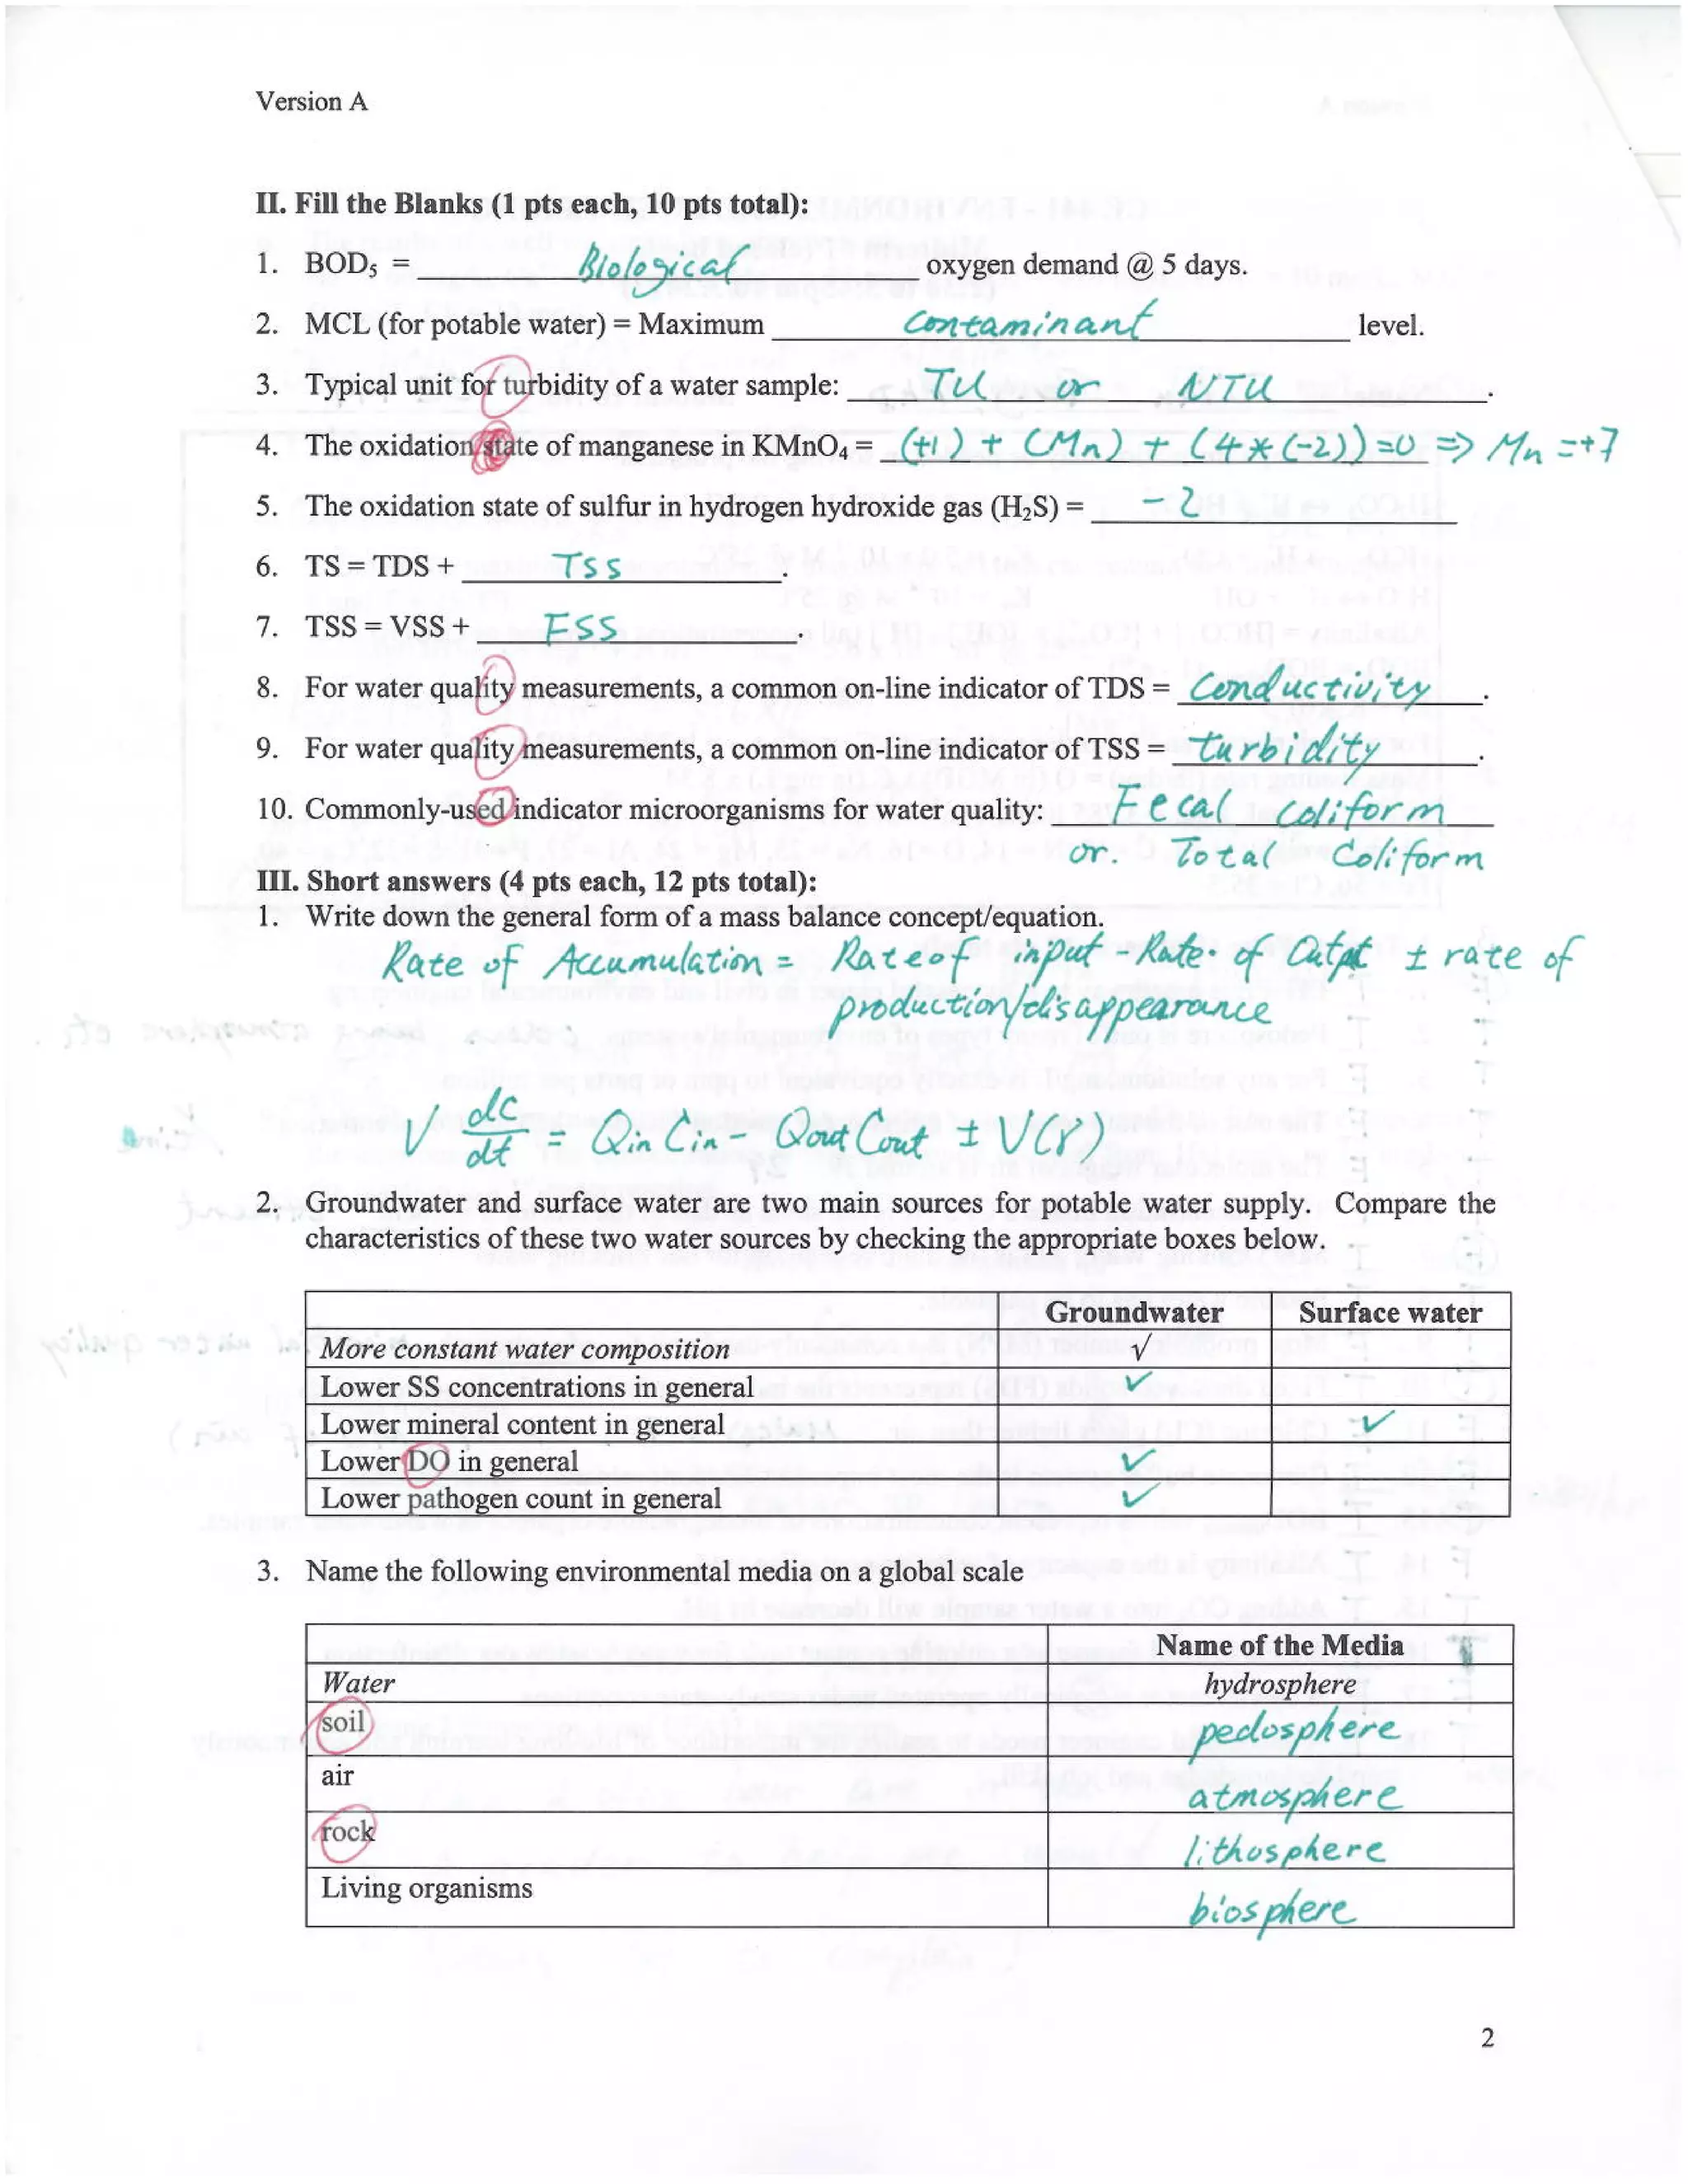 Version A
II. Fill the Blanks (1 pts each, 10 pts total):
1. BOD₅ = Biological oxygen demand @ 5 days.
2. MCL (for potable water) = Maximum contaminant level.
3. Typical unit for turbidity of a water sample: TU or NTU.
4. The oxidation state of manganese in KMnO₄ = (+1) + (Mn) + (4*(-2)) = 0 => Mn = +7
5. The oxidation state of sulfur in hydrogen hydroxide gas (H₂S) = -2
6. TS = TDS + TSS.
7. TSS = VSS + FSS.
8. For water quality measurements, a common on-line indicator of TDS = Conductivity.
9. For water quality measurements, a common on-line indicator of TSS = turbidity.
10. Commonly-used indicator microorganisms for water quality: Fecal coliform
or. Total Coliform
III. Short answers (4 pts each, 12 pts total):
1. Write down the general form of a mass balance concept/equation.
Rate of Accumulation = Rate of input - Rate of Output ± rate of
production/disappearance
V dc/dt = Qin Cin - Qout Cout ± V(r)
2. Groundwater and surface water are two main sources for potable water supply. Compare the
characteristics of these two water sources by checking the appropriate boxes below.
Groundwater Surface water
More constant water composition √
Lower SS concentrations in general ✓
Lower mineral content in general ✓
Lower DO in general ✓
Lower pathogen count in general ✓
3. Name the following environmental media on a global scale
Name of the Media
Water hydrosphere
soil pedosphere
air atmosphere
rock lithosphere
Living organisms biosphere
2